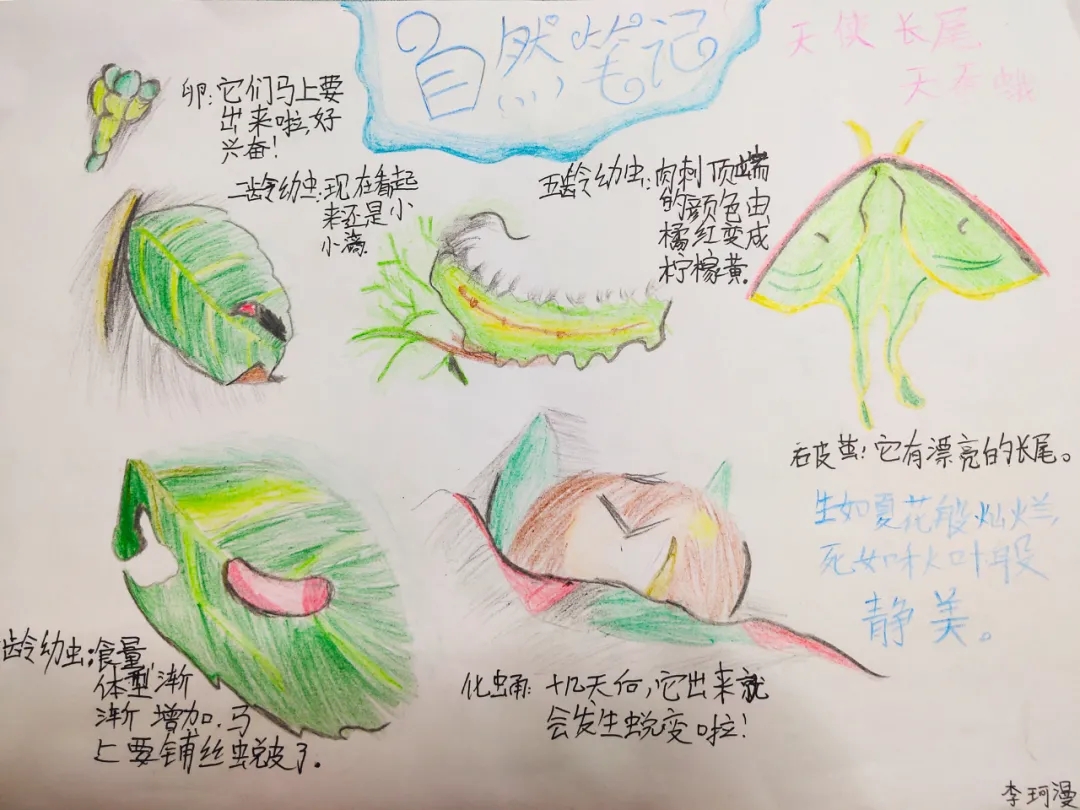 自然笔记
天使长尾
天蚕蛾
卵:它们马上要
出来啦,好
兴奋!
二龄幼虫:现在看起
来还是小
小滴.
五龄幼虫:肉刺顶端
的颜色由
橘红变成
柠檬黄.
破茧:它有漂亮的长尾。
生如夏花般灿烂,
死如秋叶般
静美。
龄幼虫:食量,
体型渐
渐增加.马
上要铺丝蜕皮了.
化蛹:十几天后,它出来就
会发生蜕变啦!
李珂漫